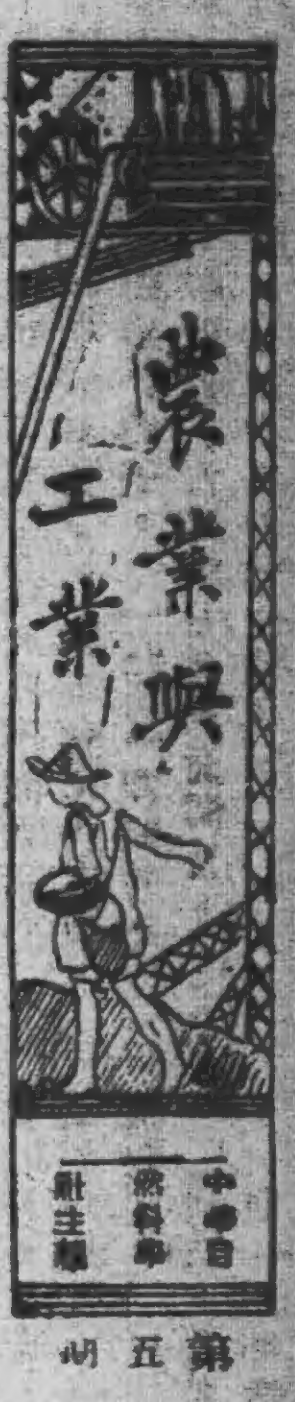 農業與
工業
中華自
然科學
社主編
第五期